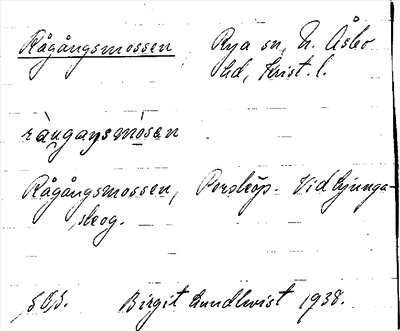 Rågångsmossen Rya sn, N. Åsbo
hd, Krist. l.
rågångsmosen
Rågångsmossen, Perstorp. Vid Ljunga-
skog.
Birgit Lundkvist 1938.